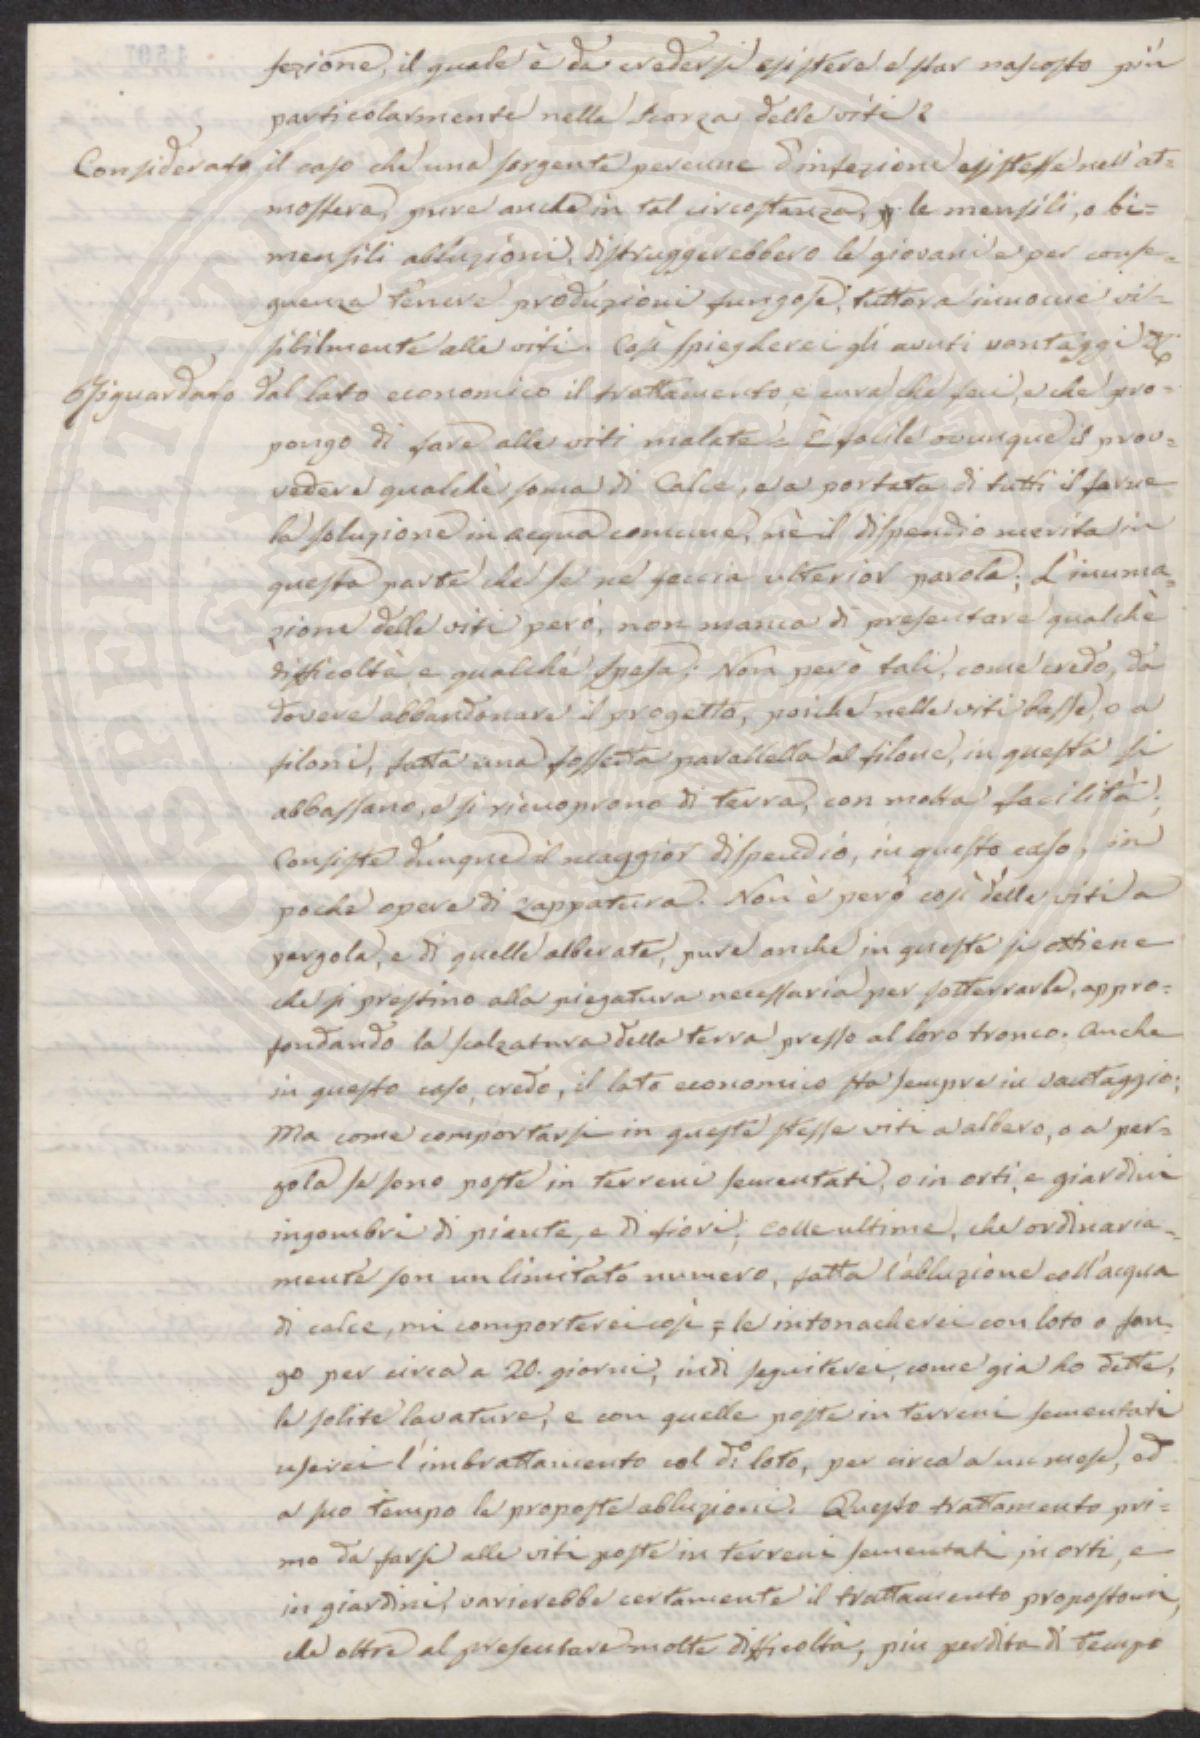 fezione, il quale è da credersi esistere e star nascosto più
particolarmente nella Scorza delle viti?
Considerato il caso che una sorgente perenne d'infezione esistesse nell'at=
mosfera, pure anche in tal circostanza, le mensili, o bi=
mensili abluzioni, distruggerebbero le giovani e per conse=
guenza tenere produzioni fungose, tuttora innocue vi=
sibilmente alle viti. Così spiegherei gli avuti vantaggi
Riguardato dal lato economico il trattamento, e cura che feci, e che pro=
pongo di fare alle viti malate = È facile ovunque il prov=
vedere qualche soma di Calce, e a portata di tutti il farne
la soluzione in acqua comune, nè il dispendio merita in
questa parte che se ne faccia ulterior parola; L'inuma=
zione delle viti però, non manca di presentare qualche
difficoltà e qualche spesa; Non però tali, come credo, da
dovere abbandonare il progetto, poichè nelle viti basse, o a
filoni, fatta una fossetta parallella al filone, in questa si
abbassano, e si ricuoprono di terra, con molta facilità;
Consiste dunque il maggior dispendio, in questo caso, in
poche opere di zappatura. Non è però così delle viti a
pergola, e di quelle alberate, pure anche in queste si ottiene
che si prestino alla piegatura necessaria per sotterrarle, appro=
fondando la scalzatura della terra presso al loro tronco. Anche
in questo caso, credo, il lato economico sta sempre in vantaggio;
Ma come comportarsi in queste stesse viti a albero, o a per=
gola se sono poste in terreni sementati, o in orti, e giardini
ingombri di piante, e di fiori; Colle ultime, che ordinaria=
mente son un limitato numero, fatta l'abluzione coll'acqua
di calce, mi comporterei così = le intonacherei con loto o fan=
go per circa a 20. giorni, indi seguiterei, come già ho dette,
le solite lavature, e con quelle poste in terreni sementati
userei l'imbrattamento col do loto, per circa a un mese, ed
a suo tempo le proposte abluzioni. Questo trattamento pri=
mo da farsi alle viti poste in terreni sementati, in orti, e
in giardini, varierebbe certamente il trattamento propostomi,
che oltre al presentare molte difficoltà, più perdita di tempo